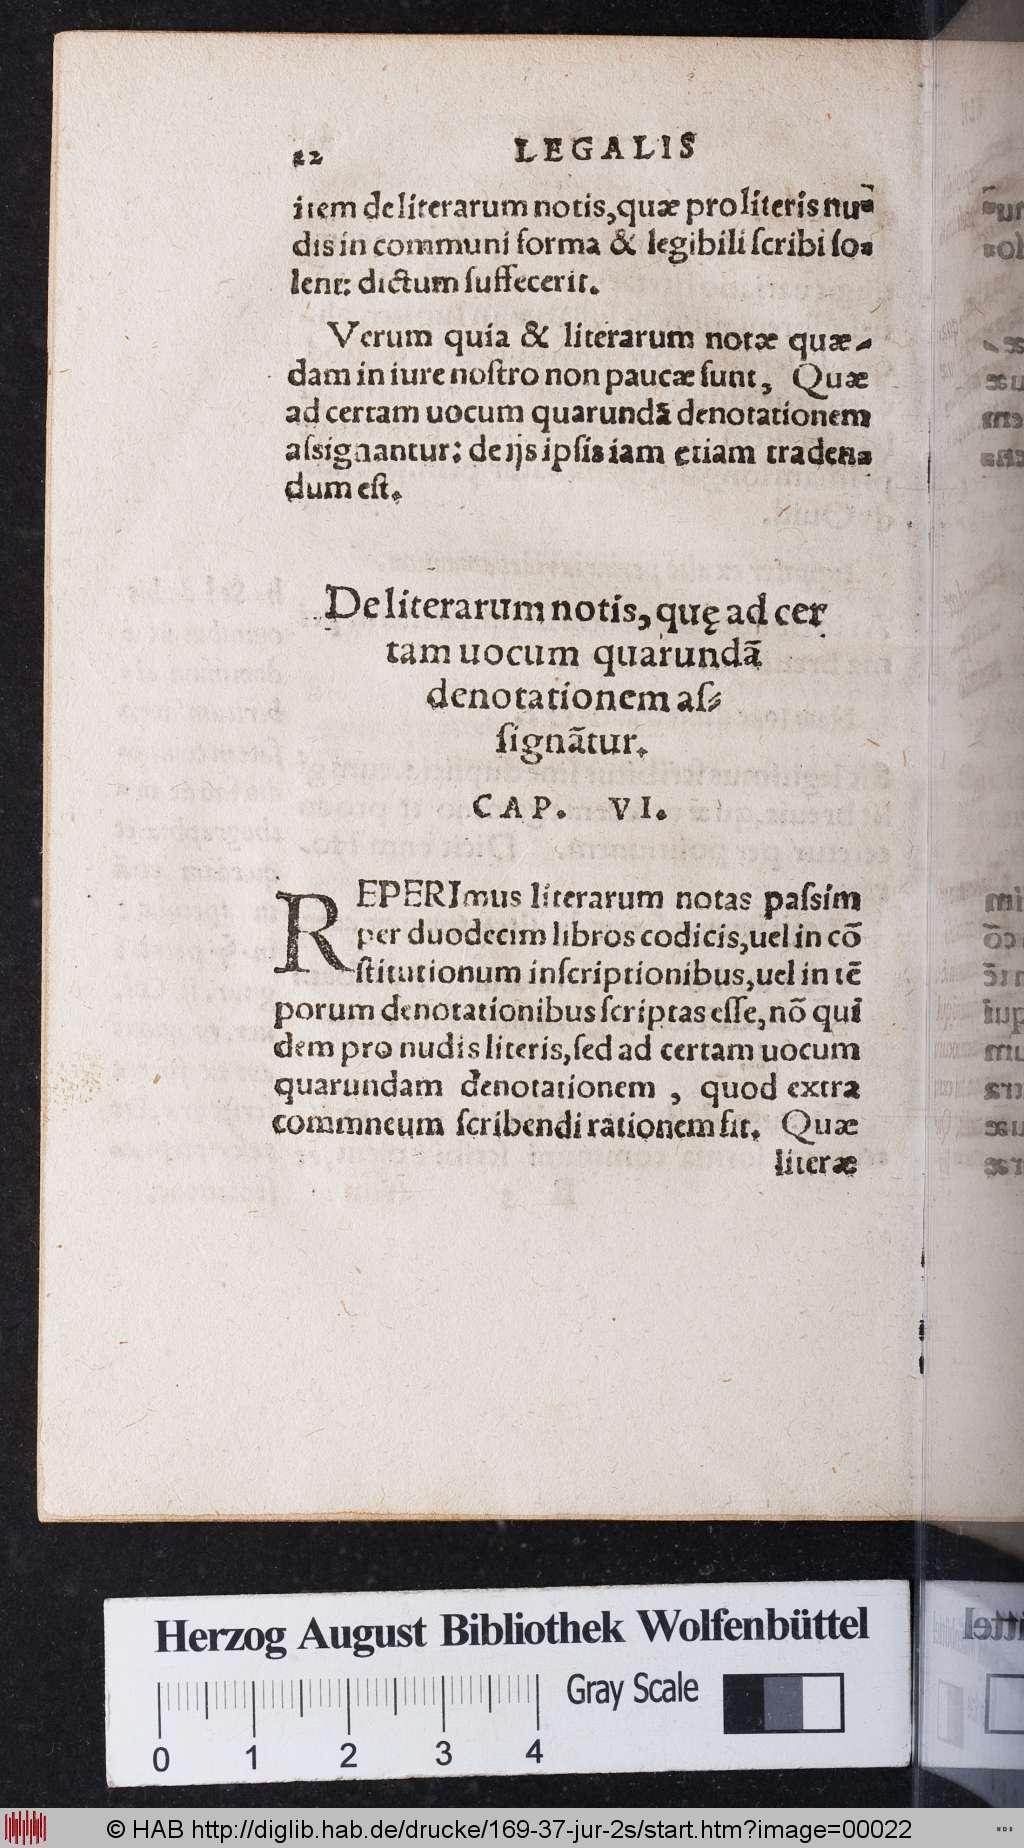 22 LEGALIS
item de literarum notis, quæ pro literis nu-
dis in communi forma & legibili scribi so-
lent: dictum suffecerit.
Verum quia & literarum notæ quæ-
dam in iure nostro non paucæ sunt, Quæ
ad certam uocum quarundã denotationem
assignantur: de ijs ipsis iam etiam traden-
dum est.
De literarum notis, quę ad cer
tam uocum quarundã
denotationem as-
signãtur.
CAP. VI.
REPERImus literarum notas passim
per duodecim libros codicis, uel in cõ
stitutionum inscriptionibus, uel in tẽ
porum denotationibus scriptas esse, nõ qui
dem pro nudis literis, sed ad certam uocum
quarundam denotationem, quod extra
commneum scribendi rationem sit. Quæ
literæ
Herzog August Bibliothek Wolfenbüttel
Gray Scale
0 1 2 3 4
© HAB http://diglib.hab.de/drucke/169-37-jur-2s/start.htm?image=00022